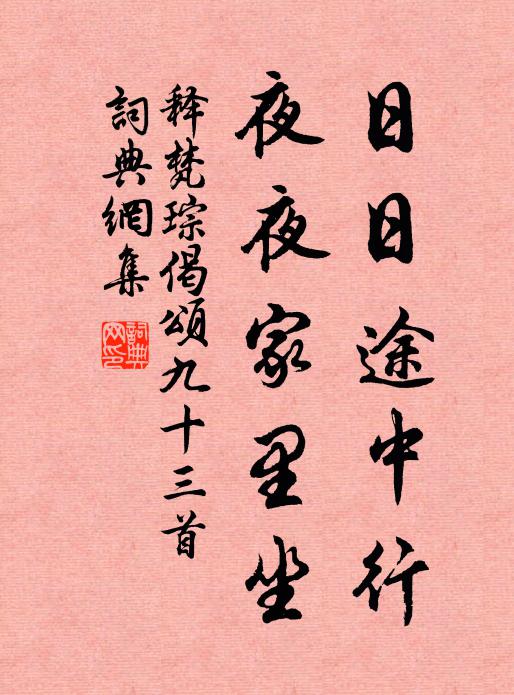 日日途中行
夜夜家里坐
释梵琮偈頌九十三首
詞典網集
詞典網印